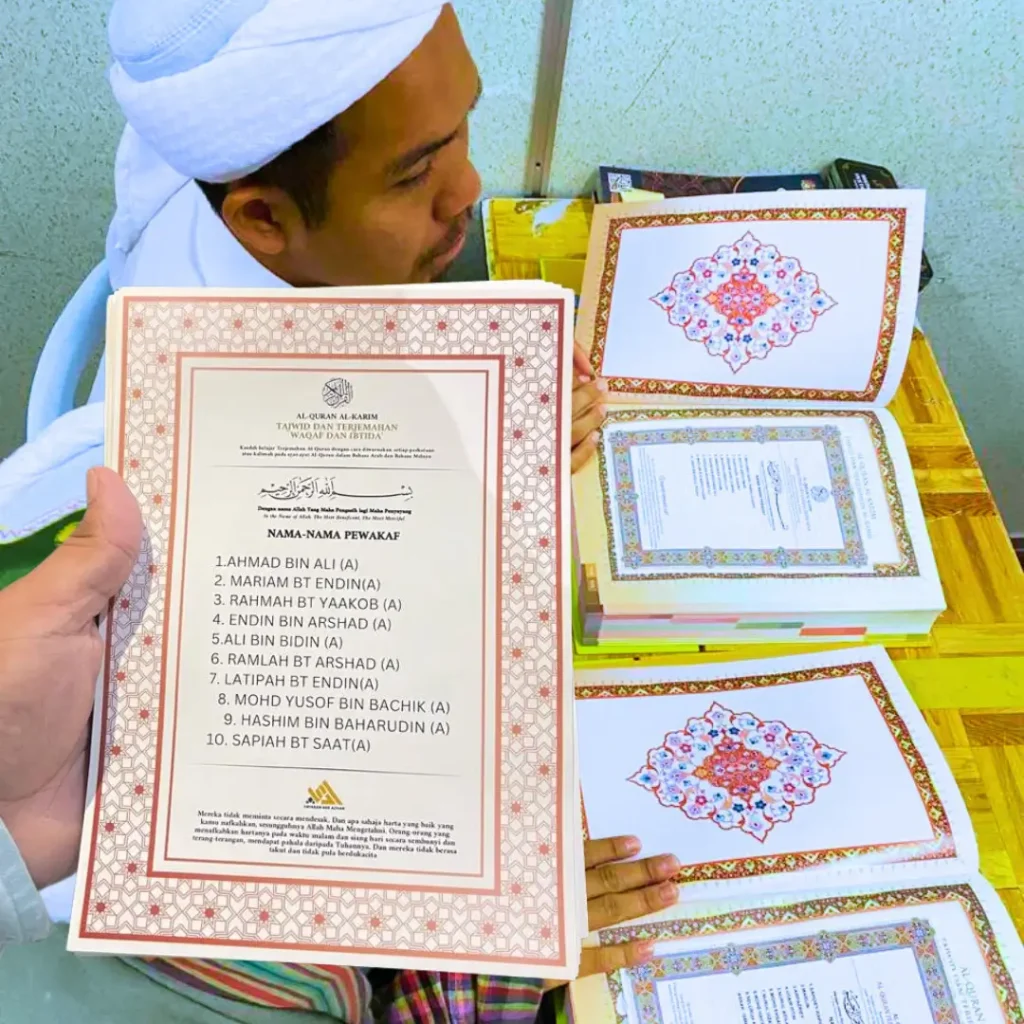 AL-QURAN AL-KARIM
TAJWID DAN TERJEMAHAN
WAQAF DAN IBTIDA'
Kaedah belajar Terjemahan Al-Quran dengan cara diwarnakan setiap perkataan
atau kalimah pada ayat-ayat Al-Quran dalam Bahasa Arab dan Bahasa Melayu
بِسْمِ اللَّهِ الرَّحْمَٰنِ الرَّحِيمِ
Dengan nama Allah Yang Maha Pemurah lagi Maha Penyayang
In the Name of Allah, The Most Beneficent, The Most Merciful
NAMA-NAMA PEWAKAF
1.AHMAD BIN ALI (A)
2. MARIAM BT ENDIN(A)
3. RAHMAH BT YAAKOB (A)
4. ENDIN BIN ARSHAD (A)
5.ALI BIN BIDIN (A)
6. RAMLAH BT ARSHAD (A)
7. LATIPAH BT ENDIN(A)
8. MOHD YUSOF BIN BACHIK (A)
9. HASHIM BIN BAHARUDIN (A)
10. SAPIAH BT SAAT(A)
Mereka tidak meminta secara mendesak. Dan apa sahaja harta yang baik yang
kamu nafkahkan, sesungguhnya Allah Maha Mengetahui. Orang-orang yang
menafkahkan hartanya pada waktu malam dan siang hari secara sembunyi dan
terang-terangan, mendapat pahala daripada Tuhannya. Dan mereka tidak berasa
takut dan tidak pula berdukacita